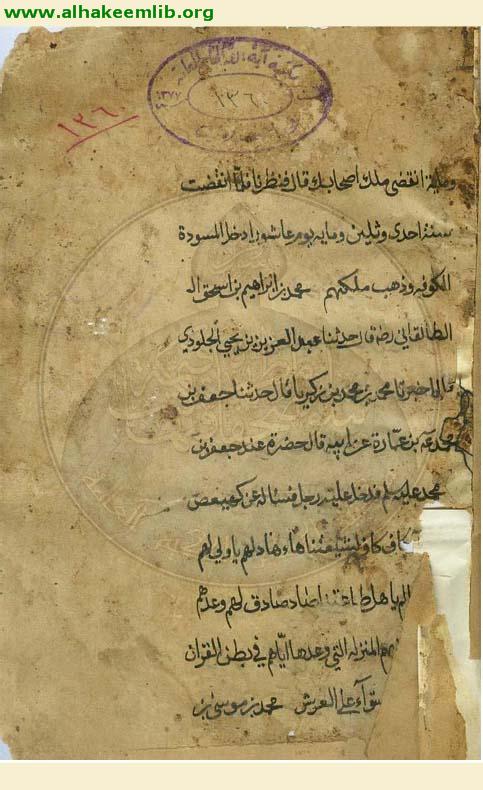 www.alhakeemlib.org
١٣٦٠
١٣٦٠
وماية انقضى ملك اصحابك قال فنظرنا فلما انقضت
سنة احدى وثلثين وماية يوم عاشورا دخل المسودة
الكوفه وذهب ملكهم محمد بن ابراهيم بن اسحق
الطالقاني رضه قال حدثنا عبد العزيز بن يحيى الجلودي
قال اخبرنا محمد بن زكريا قال حدثنا جعفر بن
محمد بن عمارة عن ابيه قال حضرت عند جعفر بن
محمد عليه سلم فدخل عليه رجل فساله عن كهيعص
كاف كاف لشيعتنا هاء هاد لهم يا ولي لهم
عالم باهل طاعتنا صاد صادق لهم وعدهم
بهم المنزلة التي وعدها اياهم في بطن القران
على العرش محمد بن موسى بن